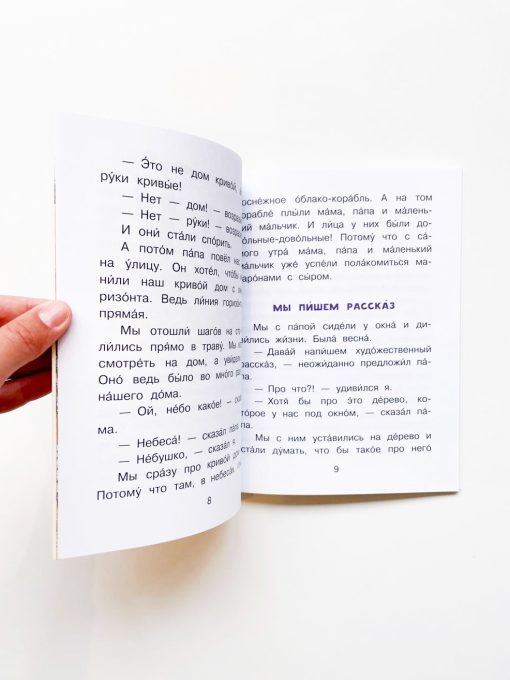 — Э́то не дом криво́й, а
ру́ки кривы́е!
— Нет — дом! —
— Нет — ру́ки! —
И они́ ста́ли спо́рить.
А пото́м па́па повёл
на у́лицу. Он хоте́л, что́бы
ни́ли наш криво́й дом с
ризо́нта. Ведь ли́ния
пряма́я.
Мы отошли́ шаго́в на
ли́лись пря́мо в траву́. Мы
смотре́ть на дом, а
Оно́ ведь бы́ло во мно́го раз
на́шего до́ма.
— Ой, не́бо како́е! —
ма.
— Небеса́! — сказа́л па́па
— Не́бушко, — сказа́л я.
Мы сра́зу про криво́й дом
Потому́ что там, в небеса́х,
8
осне́жное о́блако-кора́бль. А на том
корабле́ плы́ли ма́ма, па́па и ма́лень-
кий ма́льчик. И ли́ца у них бы́ли до-
во́льные-дово́льные! Потому́ что с са́-
мого утра́ ма́ма, па́па и ма́ленький
ма́льчик уже́ успе́ли пола́комиться ма-
каро́нами с сы́ром.
МЫ ПИ́ШЕМ РАССКА́З
Мы с па́пой сиде́ли у окна́ и ди-
ви́лись жи́зни. Была́ весна́.
— Дава́й напи́шем худо́жественный
расска́з, — неожи́данно предложи́л па́-
па.
— Про что?! — удиви́лся я.
— Хотя́ бы про э́то де́рево, ко-
то́рое у нас под окно́м, — сказа́л па́-
па.
Мы с ним уста́вились на де́рево и
ста́ли ду́мать, что бы тако́е про него́
9